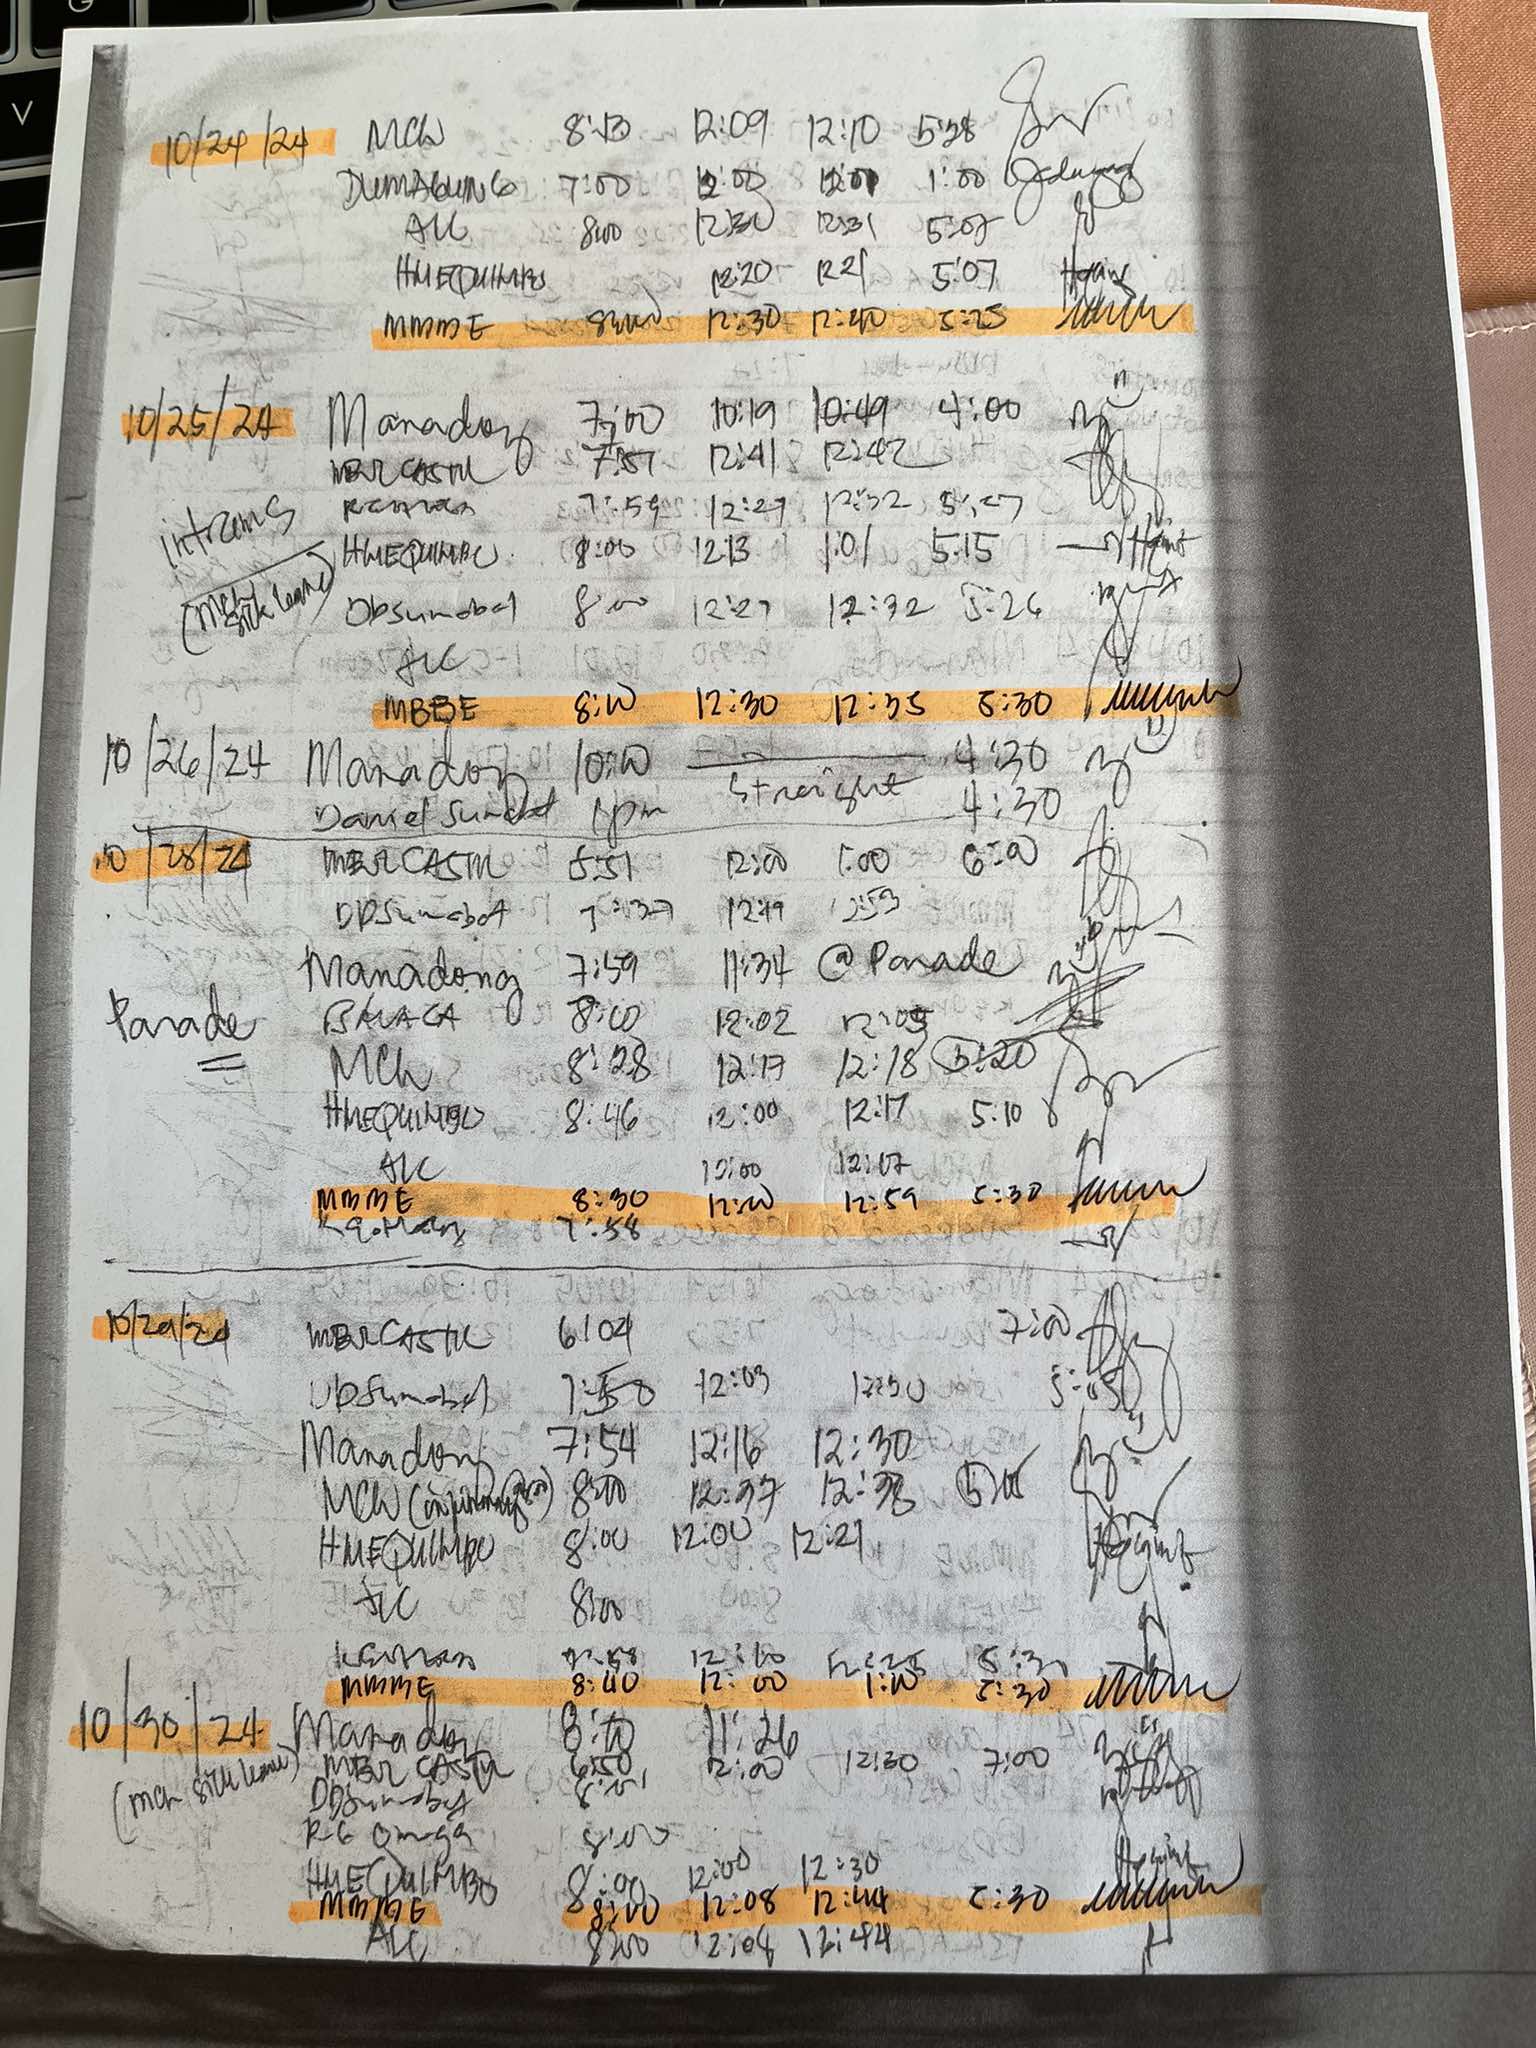 10/24/24 MCh 8:10 12:09 12:10 5:28
DUMAGUING 7:00 12:00 12:01 1:00
ALC 8:00 12:30 12:31 5:07
HMEQUIMBO 12:20 12:21 5:07
MMME 8:00 12:30 12:40 5:25
10/25/24 Manadong 7:00 10:19 10:49 4:00
MBRCASTRO 7:51 12:41 12:42
intrams 7:59 12:27 12:32 5:27
HMEQUIMBO 8:00 12:13 1:01 5:15
(mch sick leave) DDSumabat 8:00 12:27 12:32 5:26
ALC
MBBE 8:10 12:30 12:35 5:30
10/26/24 Manadong 10:10 Straight 4:30
Daniel Sumabat 1pm 4:30
10/28/24 MBRCASTRO 5:51 12:00 1:00 6:00
DDSumabat 7:37 12:19 12:53
Manadong 7:59 11:34 @ Parade
Parade 8:00 12:02 12:05
MCh 8:28 12:17 12:18 5:20
HMEQUIMBO 8:46 12:00 12:17 5:10
ALC 12:00 12:17
MMME 8:30 12:00 12:59 5:30
7:58
10/29/24 MBRCASTRO 6:04 7:00
DDSumabat 7:58 12:03 12:30 5:05
Manadong 7:54 12:16 12:30
MCh 8:00 12:37 12:38
HMEQUIMBO 8:00 12:00 12:21
ALC 8:00
7:58 12:10 12:25 5:30
MMME 8:40 12:00 1:10 5:30
10/30/24 Manadong 8:10 11:26
(mch sick leave) MBRCASTRO 6:50 12:00 12:30 7:00
DDSumabat 8:01
R-G Omega 8:00
HMEQUIMBO 8:00 12:00 12:30
MMME 8:00 12:08 12:44 5:30
ALC 8:00 12:08 12:44